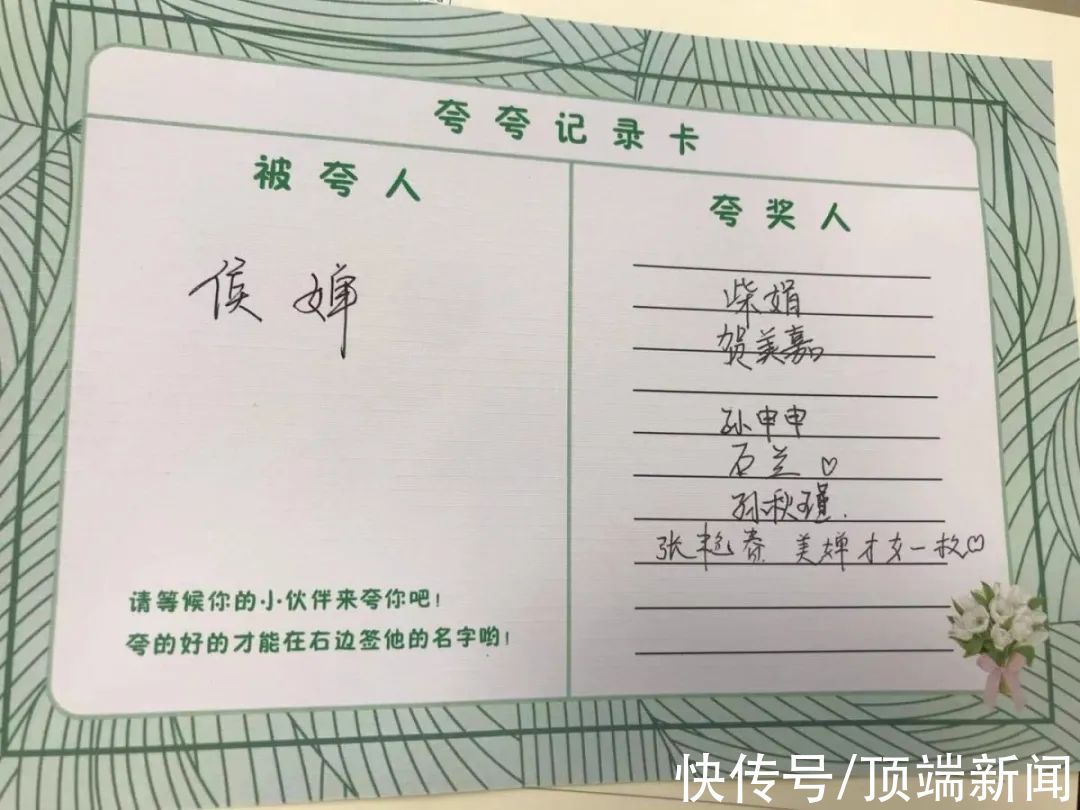 夸夸记录卡
被夸人
侯婵
请等候你的小伙伴来夸你吧!
夸的好的才能在右边签他的名字哟!
夸奖人
柴娟
贺美嘉
孙申申
石兰♡
孙秋瑾.
张艳春 美婵才女一枚♡
快传号/顶端新闻